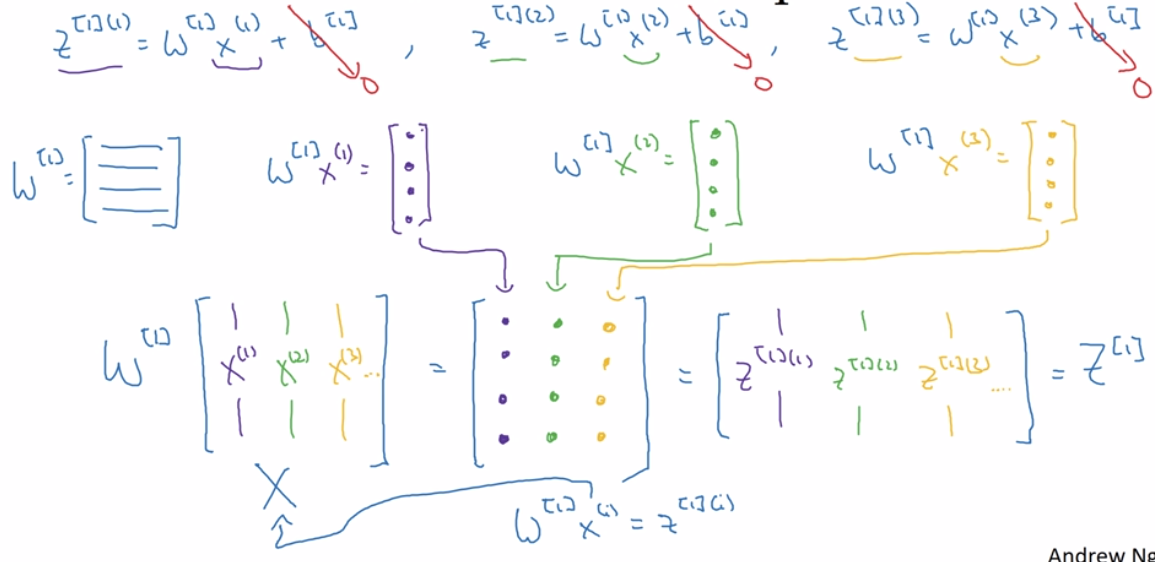 z^[1](1) = W^[1] x^(1) + b^[1] , z^[1](2) = W^[1] x^(2) + b^[1] , z^[1](3) = W^[1] x^(3) + b^[1]
0 0 0
W^[1] = W^[1] x^(1) = W^[1] x^(2) = W^[1] x^(3) =
W^[1] [ x^(1) x^(2) x^(3) ... ] = = [ z^[1](1) z^[1](2) z^[1](3) .... ] = Z^[1]
X
W^[1] x^(i) = z^[1](i)
Andrew Ng